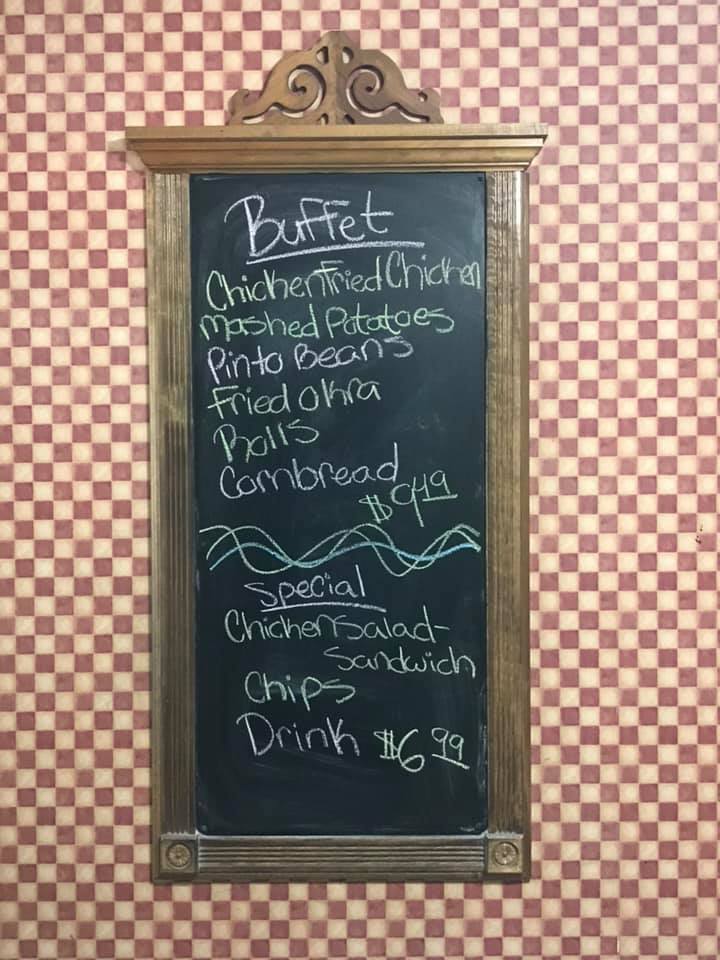 Buffet
Chicken Fried Chicken
mashed Potatoes
Pinto Beans
Fried Okra
Rolls
Cornbread
$9.49
special
Chicken Salad-
Sandwich
Chips
Drink $6.99